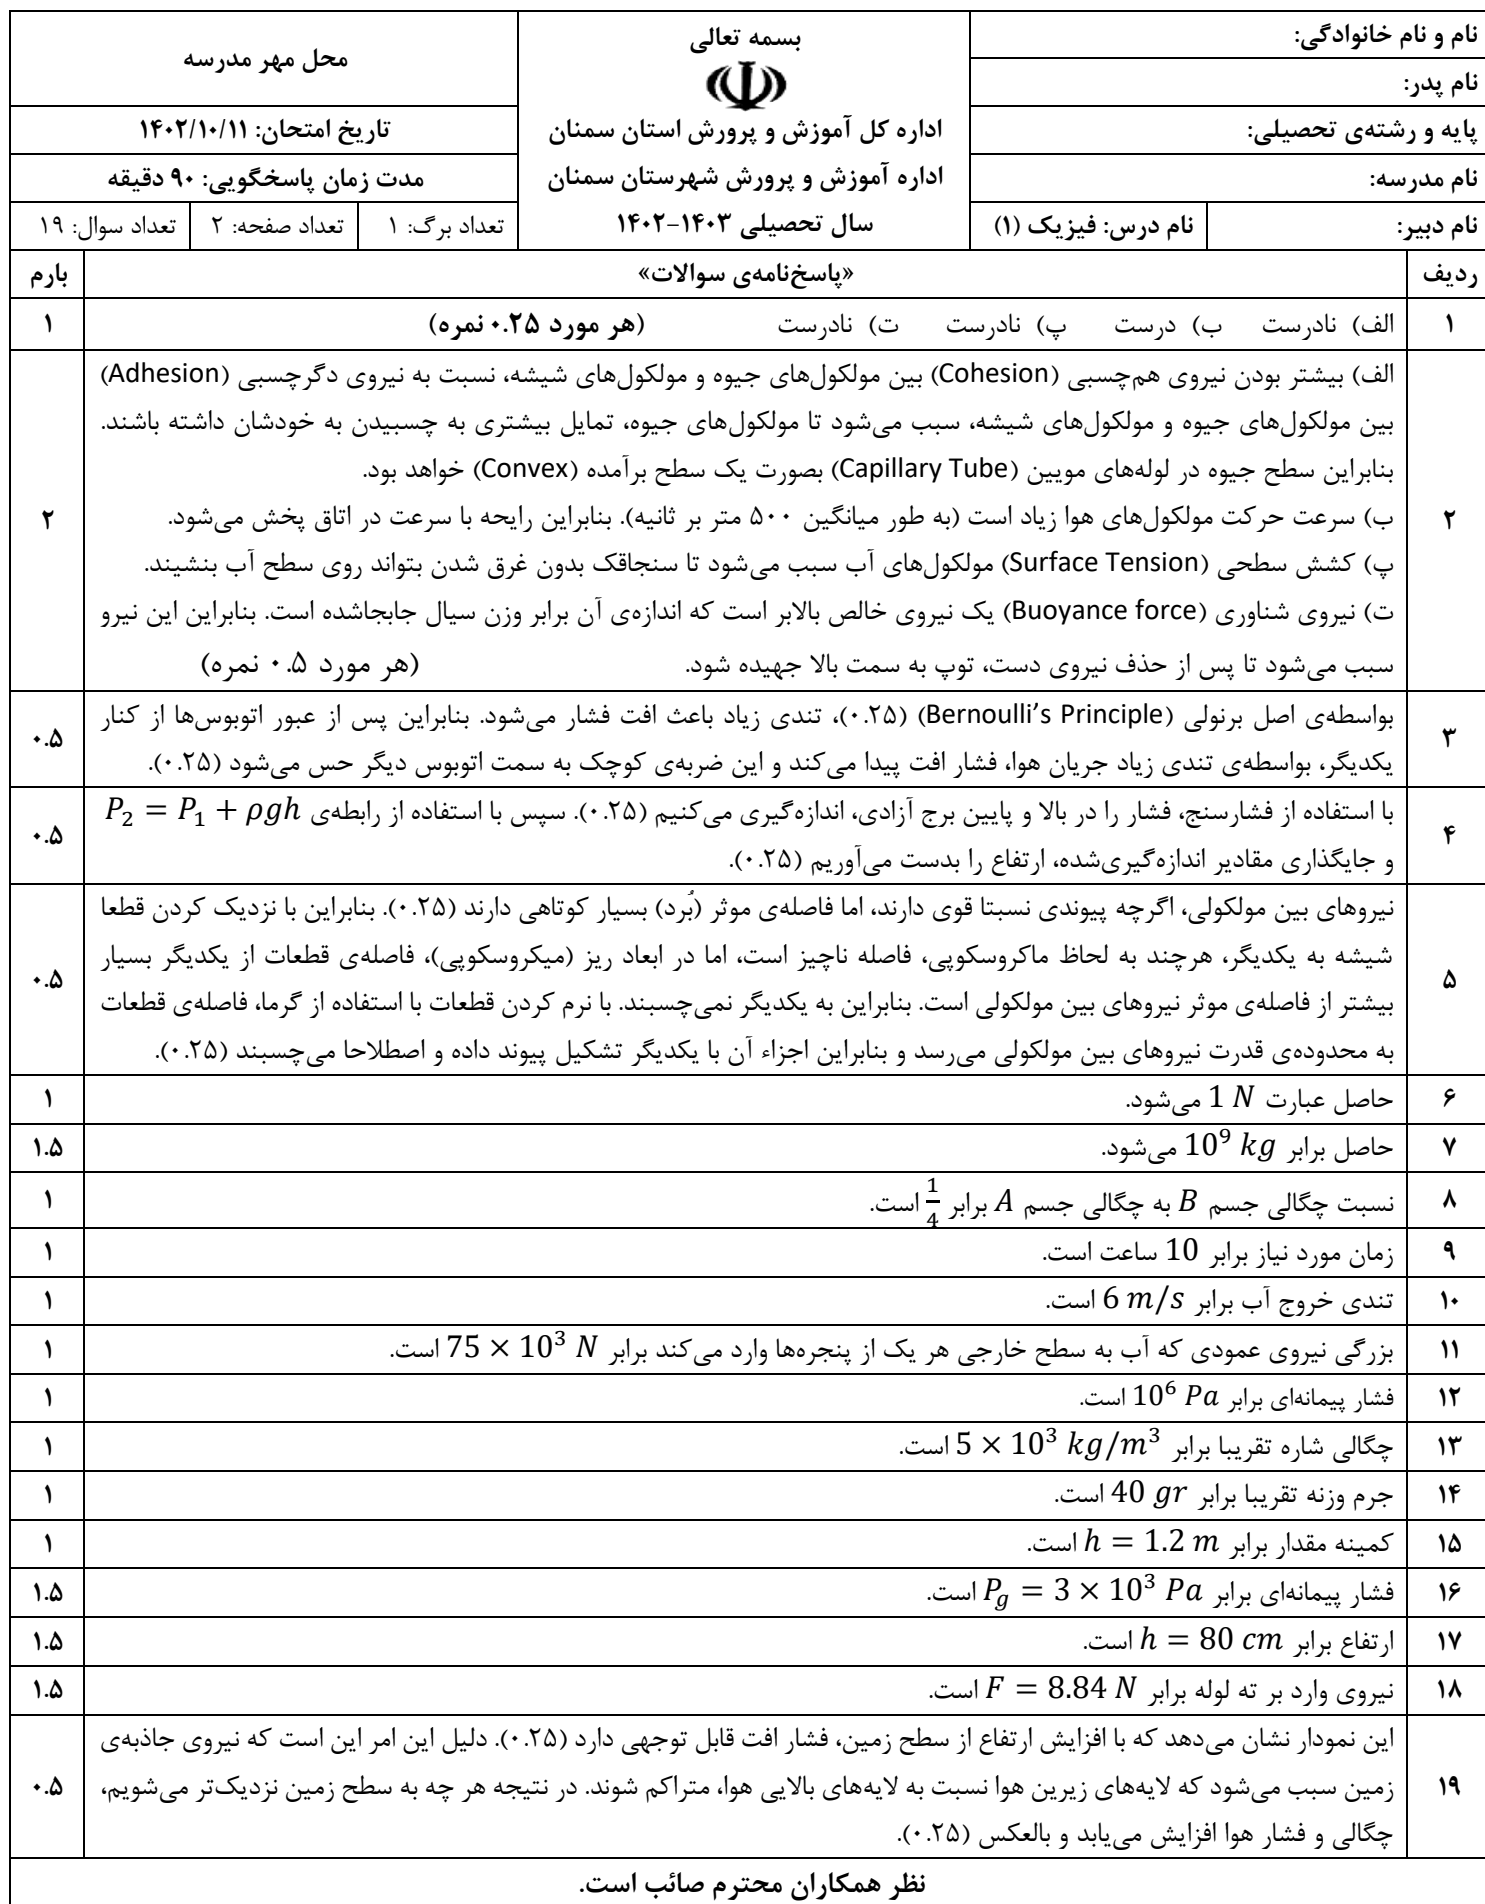 نام و نام خانوادگی:
نام پدر:
پایه و رشته‌ی تحصیلی:
نام مدرسه:
نام دبیر:
نام درس: فیزیک (۱)
بسمه تعالی
اداره کل آموزش و پرورش استان سمنان
اداره آموزش و پرورش شهرستان سمنان
سال تحصیلی ۱۴۰۳-۱۴۰۲
محل مهر مدرسه
تاریخ امتحان: ۱۴۰۲/۱۰/۱۱
مدت زمان پاسخگویی: ۹۰ دقیقه
تعداد برگ: ۱ تعداد صفحه: ۲ تعداد سوال: ۱۹
ردیف «پاسخ‌نامه‌ی سوالات» بارم
۱ الف) نادرست ب) درست پ) نادرست ت) نادرست (هر مورد ۰.۲۵ نمره) ۱
الف) بیشتر بودن نیروی هم‌چسبی (Cohesion) بین مولکول‌های جیوه و مولکول‌های شیشه، نسبت به نیروی دگرچسبی (Adhesion)
بین مولکول‌های جیوه و مولکول‌های شیشه، سبب می‌شود تا مولکول‌های جیوه، تمایل بیشتری به چسبیدن به خودشان داشته باشند.
بنابراین سطح جیوه در لوله‌های مویین (Capillary Tube) بصورت یک سطح برآمده (Convex) خواهد بود.
۲ ب) سرعت حرکت مولکول‌های هوا زیاد است (به طور میانگین ۵۰۰ متر بر ثانیه). بنابراین رایحه با سرعت در اتاق پخش می‌شود. ۲
پ) کشش سطحی (Surface Tension) مولکول‌های آب سبب می‌شود تا سنجاقک بدون غرق شدن بتواند روی سطح آب بنشیند.
ت) نیروی شناوری (Buoyance force) یک نیروی خالص بالابر است که اندازه‌ی آن برابر وزن سیال جابجاشده است. بنابراین این نیرو
سبب می‌شود تا پس از حذف نیروی دست، توپ به سمت بالا جهیده شود. (هر مورد ۰.۵ نمره)
۳ بواسطه‌ی اصل برنولی (Bernoulli’s Principle) (۰.۲۵)، تندی زیاد باعث افت فشار می‌شود. بنابراین پس از عبور اتوبوس‌ها از کنار ۰.۵
یکدیگر، بواسطه‌ی تندی زیاد جریان هوا، فشار افت پیدا می‌کند و این ضربه‌ی کوچک به سمت اتوبوس دیگر حس می‌شود (۰.۲۵).
۴ با استفاده از فشارسنج، فشار را در بالا و پایین برج آزادی، اندازه‌گیری می‌کنیم (۰.۲۵). سپس با استفاده از رابطه‌ی P₂ = P₁ + ρgh ۰.۵
و جایگذاری مقادیر اندازه‌گیری‌شده، ارتفاع را بدست می‌آوریم (۰.۲۵).
نیروهای بین مولکولی، اگرچه پیوندی نسبتا قوی دارند، اما فاصله‌ی موثر (بُرد) بسیار کوتاهی دارند (۰.۲۵). بنابراین با نزدیک کردن قطعا
۵ شیشه به یکدیگر، هرچند به لحاظ ماکروسکوپی، فاصله ناچیز است، اما در ابعاد ریز (میکروسکوپی)، فاصله‌ی قطعات از یکدیگر بسیار ۰.۵
بیشتر از فاصله‌ی موثر نیروهای بین مولکولی است. بنابراین به یکدیگر نمی‌چسبند. با نرم کردن قطعات با استفاده از گرما، فاصله‌ی قطعات
به محدوده‌ی قدرت نیروهای بین مولکولی می‌رسد و بنابراین اجزاء آن با یکدیگر تشکیل پیوند داده و اصطلاحا می‌چسبند (۰.۲۵).
۶ حاصل عبارت 1 N می‌شود. ۱
۷ حاصل برابر 10⁹ kg می‌شود. ۱.۵
۸ نسبت چگالی جسم B به چگالی جسم A برابر 1/4 است. ۱
۹ زمان مورد نیاز برابر 10 ساعت است. ۱
۱۰ تندی خروج آب برابر 6 m/s است. ۱
۱۱ بزرگی نیروی عمودی که آب به سطح خارجی هر یک از پنجره‌ها وارد می‌کند برابر 75 × 10³ N است. ۱
۱۲ فشار پیمانه‌ای برابر 10⁶ Pa است. ۱
۱۳ چگالی شاره تقریبا برابر 5 × 10³ kg/m³ است. ۱
۱۴ جرم وزنه تقریبا برابر 40 gr است. ۱
۱۵ کمینه مقدار برابر h = 1.2 m است. ۱
۱۶ فشار پیمانه‌ای برابر P_g = 3 × 10³ Pa است. ۱.۵
۱۷ ارتفاع برابر h = 80 cm است. ۱.۵
۱۸ نیروی وارد بر ته لوله برابر F = 8.84 N است. ۱.۵
این نمودار نشان می‌دهد که با افزایش ارتفاع از سطح زمین، فشار افت قابل توجهی دارد (۰.۲۵). دلیل این امر این است که نیروی جاذبه‌ی
۱۹ زمین سبب می‌شود که لایه‌های زیرین هوا نسبت به لایه‌های بالایی هوا، متراکم شوند. در نتیجه هر چه به سطح زمین نزدیک‌تر می‌شویم، ۰.۵
چگالی و فشار هوا افزایش می‌یابد و بالعکس (۰.۲۵).
نظر همکاران محترم صائب است.